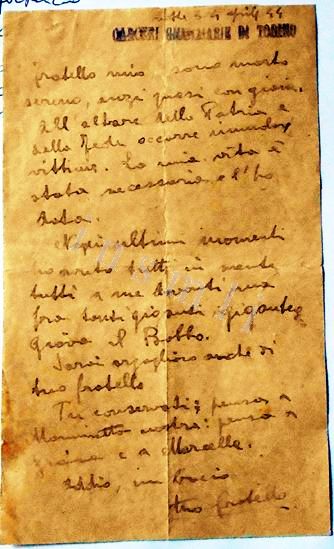 Notte 3-4 aprile 44
CARCERI GIUDIZIARIE DI TORINO
Fratello mio sono morto
sereno, anzi quasi con gioia.
All'altare della Patria e
della Fede occorre immolar
vittime. La mia vita è
stata necessaria e l'ho
data.
Negli ultimi momenti
ho avuto tutti in mente
tutti a me davanti ma
fra tanti giganti giganteg
giava il Babbo.
Sarai orgoglioso anche di
tuo fratello
Tu conservati; pensa a
Mammetta nostra; pensa a
e a Marcella.
Addio, un bacio
tuo fratello